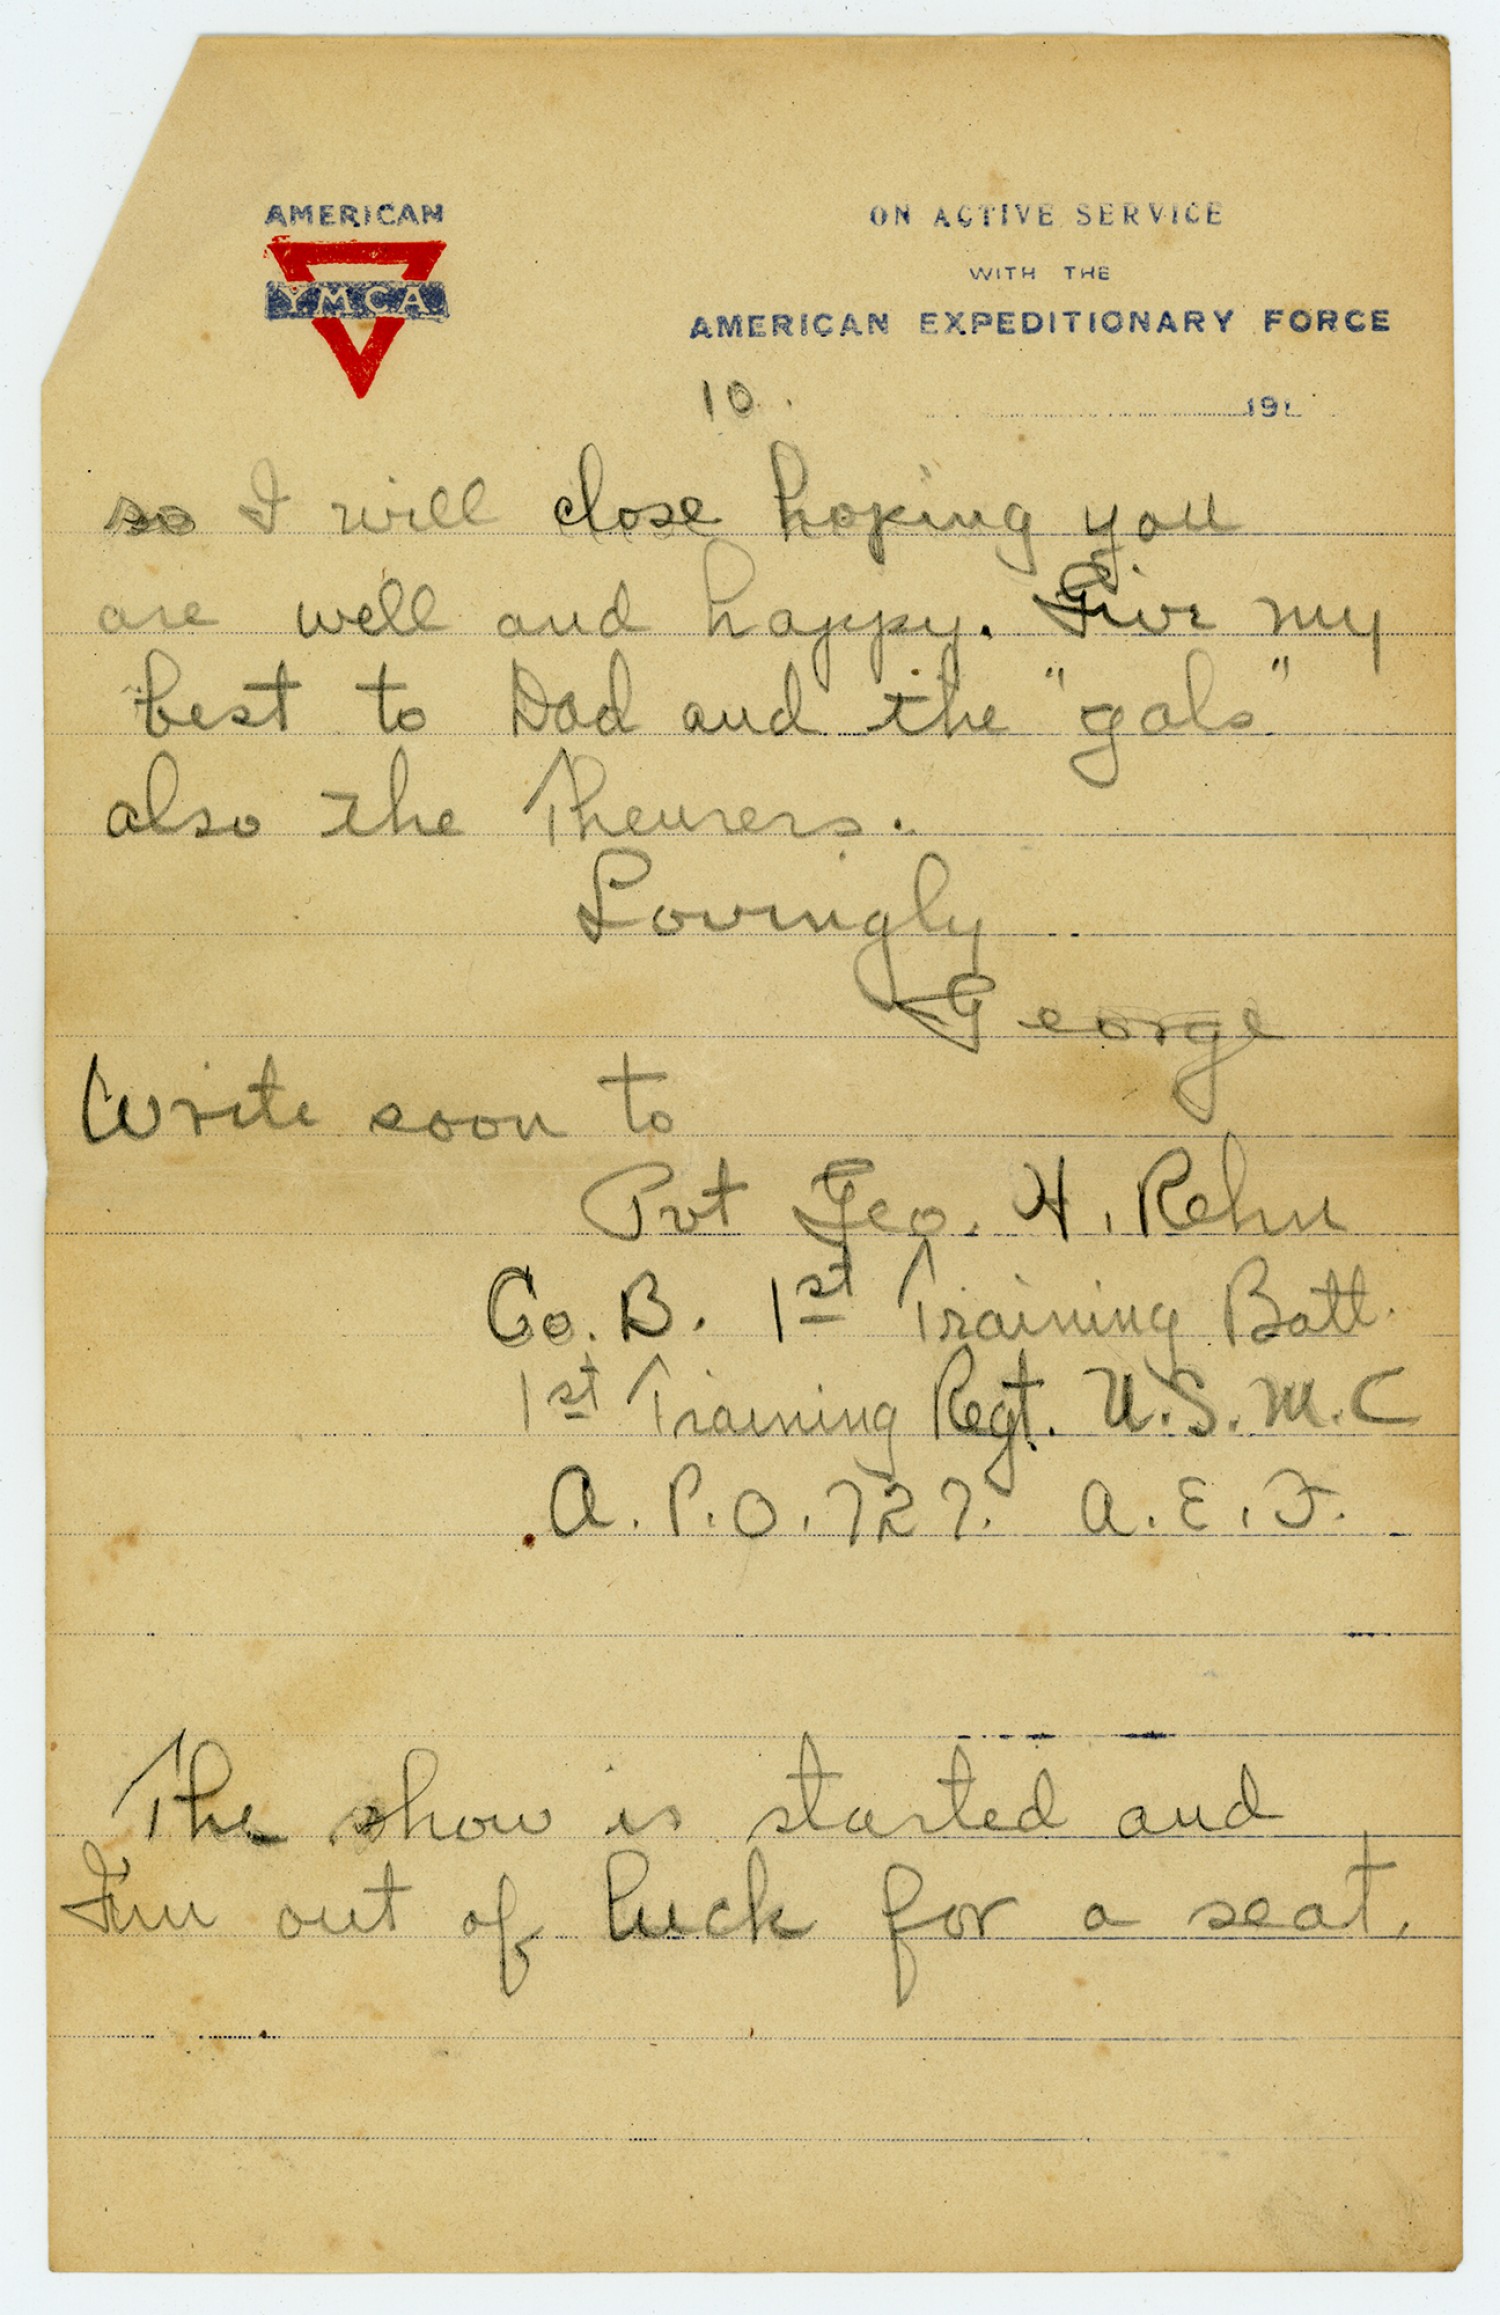 AMERICAN
YMCA
ON ACTIVE SERVICE
WITH THE
AMERICAN EXPEDITIONARY FORCE
10. 191
so I will close hoping you
are well and happy. Give my
best to Dad and the "gals"
also the Theurers.
Lovingly
George
Write soon to
Pvt Geo. H. Rehn
Co. B. 1st Training Batt.
1st Training Regt. U.S.M.C
A.P.O. 727. A.E.F.
The show is started and
I'm out of luck for a seat.